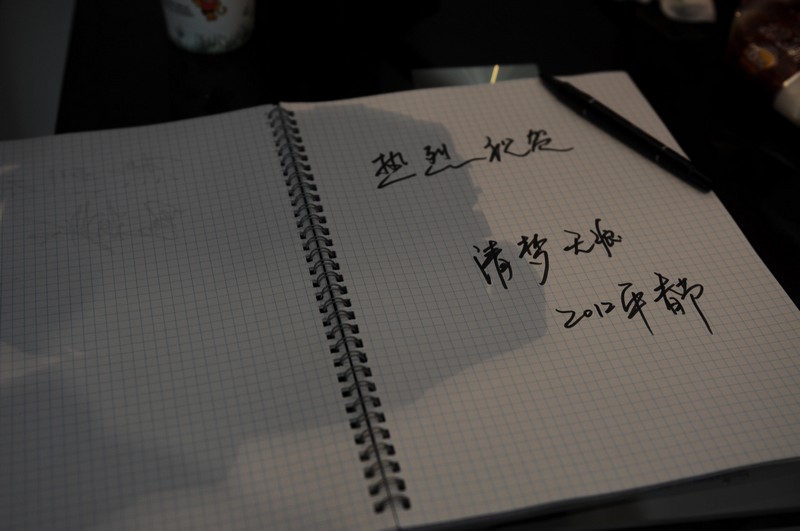 热烈祝贺
清梦无痕
2012年春节